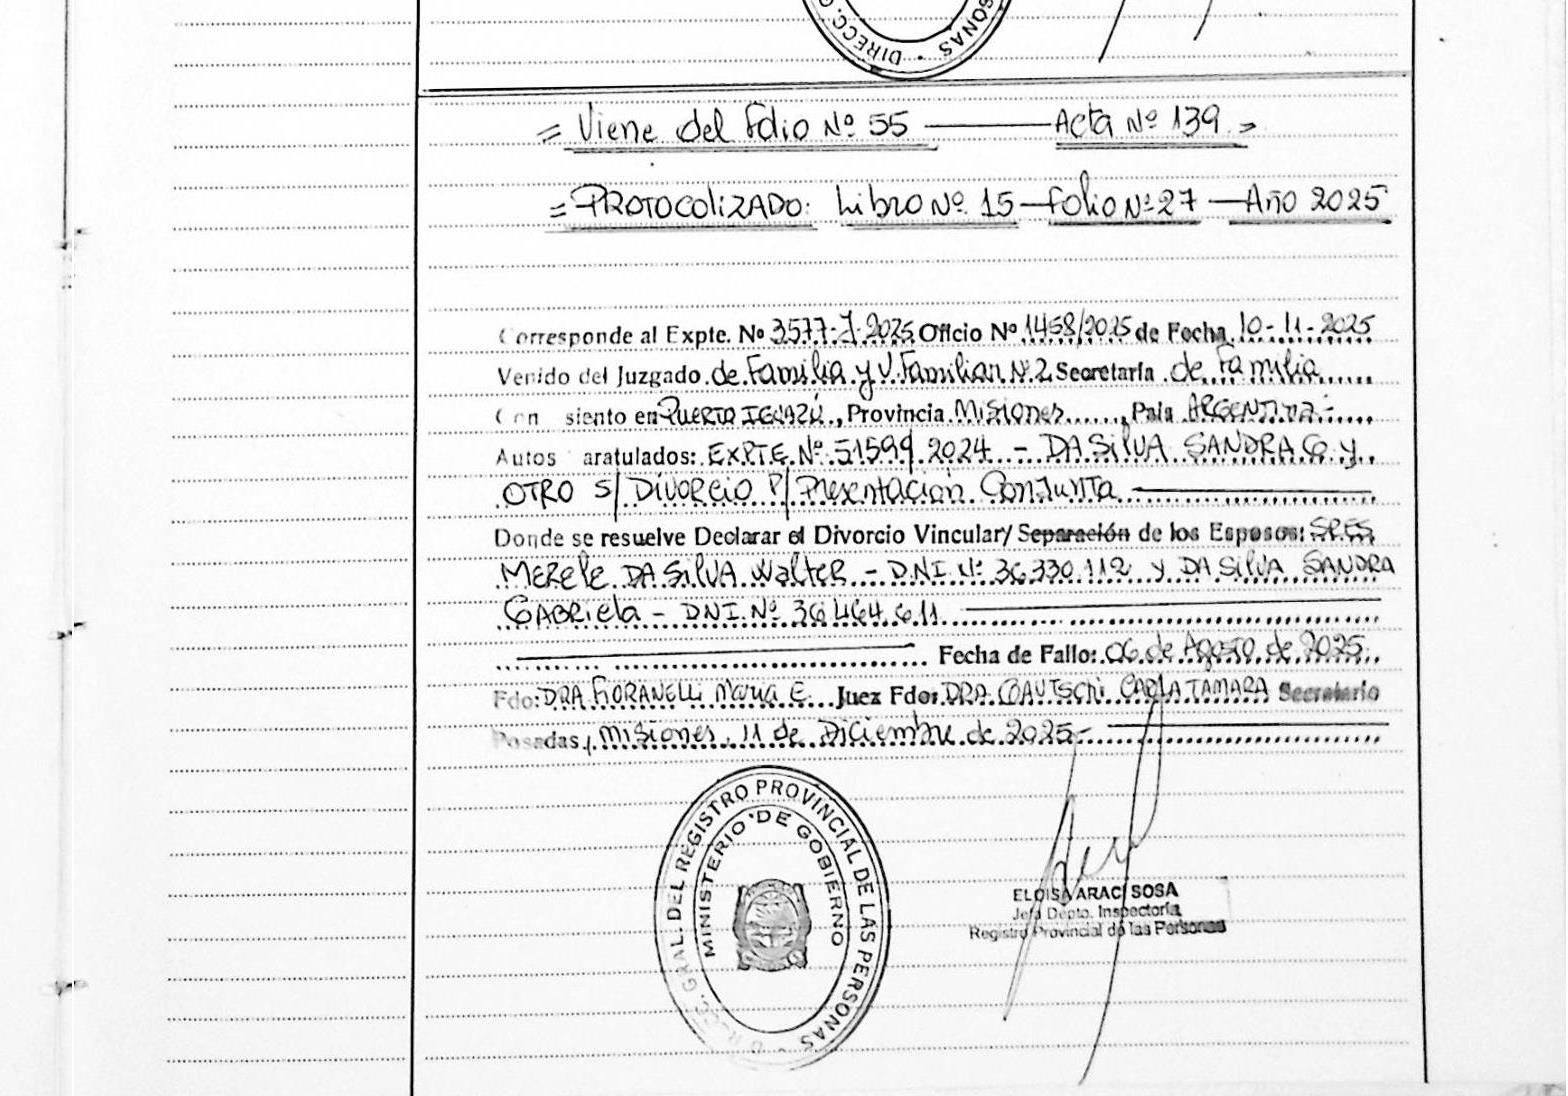 DIRECC. G
SONAS
= Viene del Folio Nº 55 — Acta Nº 139 =
= PROTOCOLIZADO: Libro Nº 15 — Folio Nº 27 — Año 2025
Corresponde al Expte. Nº 3577-J-2025 Oficio Nº 1458/2025 de Fecha 10-11-2025
Venido del Juzgado de Familia y V. Familiar Nº 2 Secretaría de Familia
Con siento en PUERTO IGUAZÚ, Provincia Misiones, Pais ARGENTINA-
Autos aratulados: EXPTE Nº 51599/2024 - DA SilVA SANDRA G y
OTRO S/ DIVORCIO P/ Presentación CONJUNTA
Donde se resuelve Declarar el Divorcio Vincular/ Separación de los Esposos: SRES
MERELE DA SilVA Walter - D.N.I. Nº 36.330.112 y DA SilVA SANDRA
GABRIELA - DNI. Nº 36.464.611
Fecha de Fallo: 06 de Agosto de 2025
Fdo: DRA FIORANELLI Maria E. Juez Fdo: DRA. GAUTSCHI CARLA TAMARA Secretario
Posadas, Misiones, 11 de Diciembre de 2025-
DIRECC. GRAL. DEL REGISTRO PROVINCIAL DE LAS PERSONAS
MINISTERIO DE GOBIERNO
ELOISA ARACI SOSA
Jefa Depto. Inspectoría
Registro Provincial de las Personas